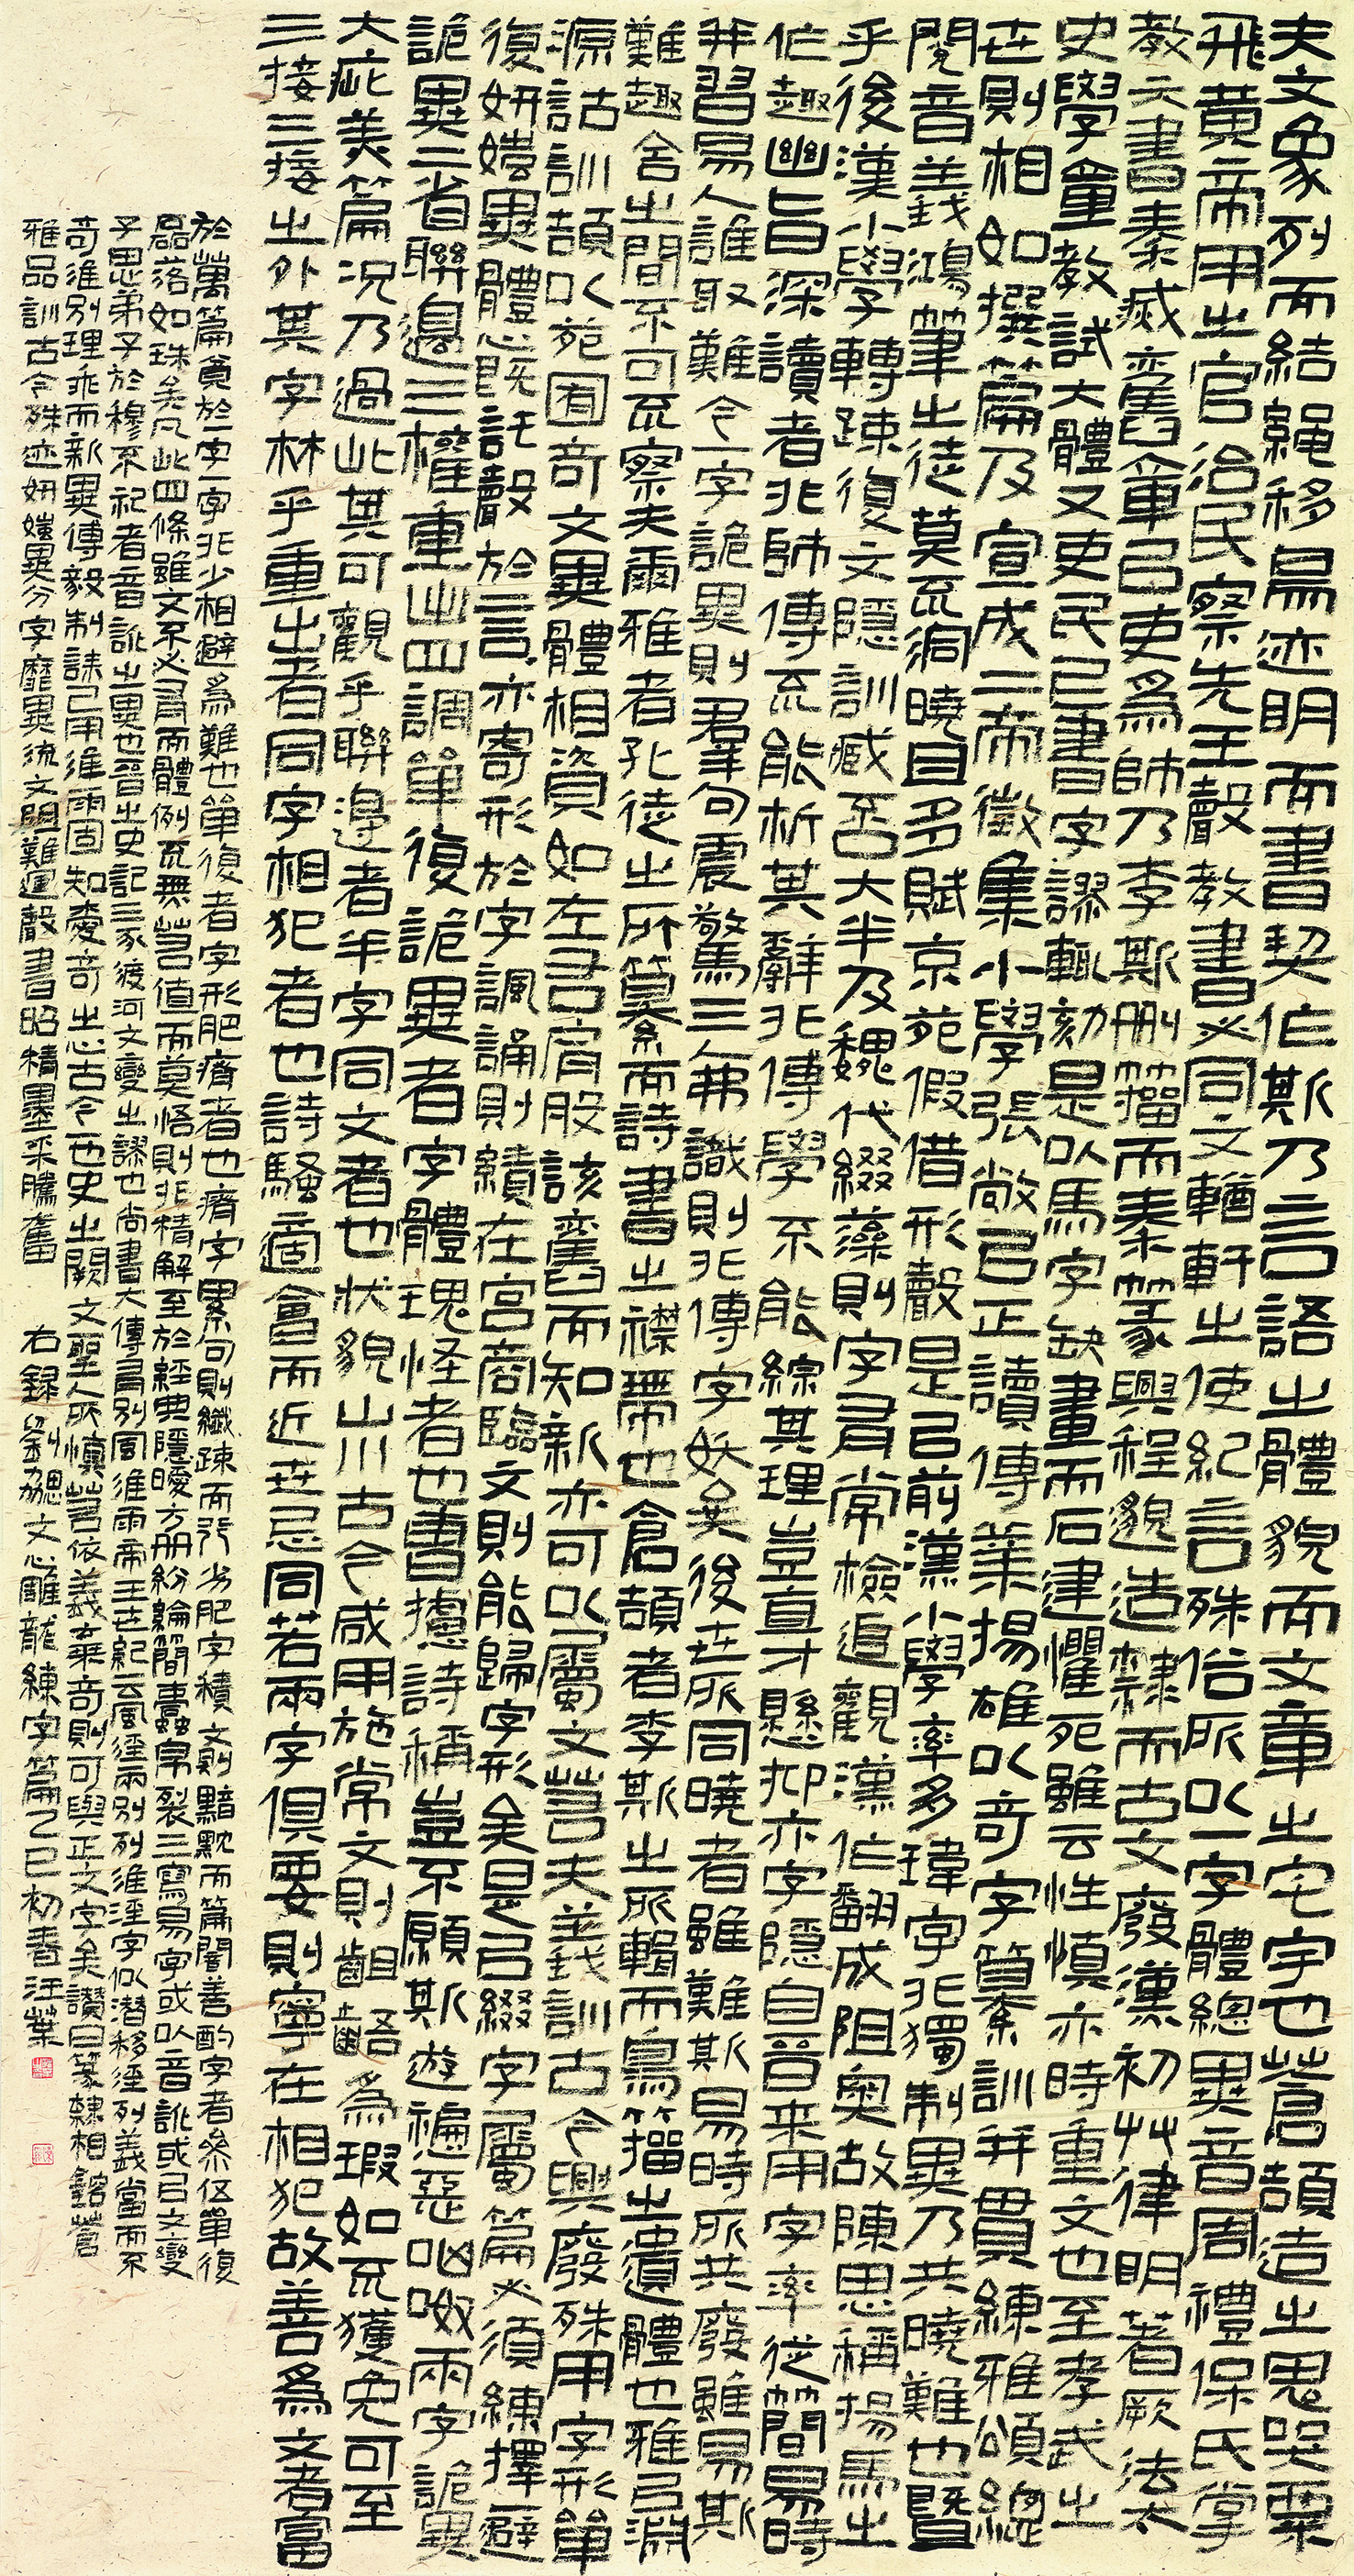 夫文象列而結繩移鳥迹明而書契作斯乃言語之體貌而文章之宅宇也蒼頡造之鬼哭粟
飛黃帝用之官治民察先王聲教書必同文輶軒之使紀言殊俗所以一字體總異音周禮保氏掌
教六書秦滅舊章以吏爲師乃李斯刪籀而秦篆興程邈造隸而古文廢漢初艸律明著厥法太
史學童教試六體又吏民上書字謬輒劾是以馬字缺畫而石建懼死雖云性慎亦時重文也至孝武之
世則相如撰篇及宣成二帝徵集小學張敞以正讀傳業揚雄以奇字纂訓並貫練雅頌總
閱音義鴻筆之徒莫不洞曉且多賦京苑假借形聲是以前漢小學率多瑋字非獨制異乃共曉難也暨
乎後漢小學轉疎復文隱訓臧否大半及魏代綴藻則字有常檢追觀漢作翻成阻奧故陳思稱揚馬之
作趣幽旨深讀者非師傳不能析其辭非博學不能綜其理豈直才懸抑亦字隱自晉來用字率從簡易時
並習易人誰取難今一字詭異則群句震驚三人弗識則非傳字妖矣後世所同曉者雖難斯易時所共廢雖易斯
難趣舍之間不可不察夫爾雅者孔徒之所纂而詩書之襟帶也倉頡者李斯之所輯而鳥籀之遺體也雅以淵
源詁訓頡以苑囿奇文異體相資如左右肩股該舊而知新亦可以屬文若夫義訓古今興廢殊用字形單
復妍媸異體心既託聲於言亦寄形於字諷誦則績在宮商臨文則能歸字形矣是以綴字屬篇必須練擇一避
詭異二省聯邊三權重出四調單復詭異者字體瑰怪者也曹攄詩稱豈不願斯遊褊惡吶呶兩字詭異
大疵美篇況乃過此其可觀乎聯邊者半字同文者也狀貌山川古今咸用施常文則齟齬爲瑕如不獲免可至
三接三接之外其字林乎重出者同字相犯者也詩騷適會而近世忌同若兩字俱要則寧在相犯故善爲文者富
於萬篇貧於一字一字非少相避爲難也單復者字形肥瘠者也瘠字累句則纖疎而行劣肥字積文則黯黕而篇闇善酌字者參伍單復
磊落如珠矣凡此四條雖文不必有而體例不無若值而莫悟則非精解至於經典隱曖方冊紛綸簡蠹帛裂三寫易字或以音訛或以文變
子思弟子於穆不祀者音訛之異也晉之史記三豕渡河文變之謬也尚書大傳有別風淮雨帝王世紀云風淫雨別列淮淫字似潛移淫列義當而不
奇淮別理乖而新異傅毅制誄已用淮雨固知愛奇之心古今一也史之闕文聖人所慎若依義棄奇則可與正文字矣讚曰篆隸相鎔蒼
雅品訓古今殊迹妍媸異分字靡異流文阻難運聲畫昭精墨采騰奮 右錄劉勰文心雕龍練字篇乙巳初春汪葉